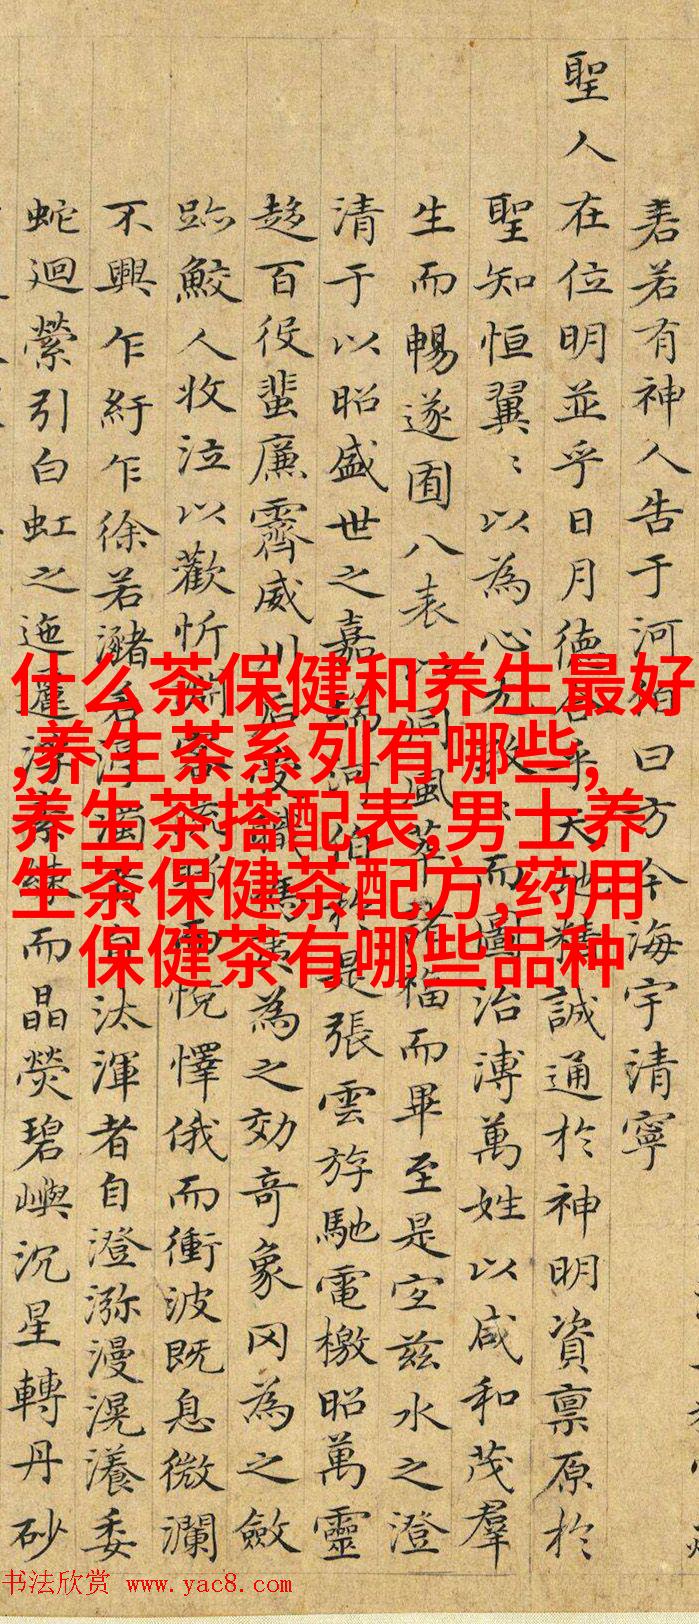 什么茶保健和养生最好
,养生茶系列有哪些,
养生茶搭配表,男士养
生茶保健茶配方,药用
保健茶有哪些品种
若有神人告于河伯曰方今海宇清寧
聖人在位明並乎日月德合乎天地精誠通於神明資稟原於
聖知恒翼〻以為心尤孜〻而圖治溥萬姓以咸和茂羣
生而暢遂囿八表以同風萃諸福而畢至是宜茲水之澄
清于以昭盛世之嘉瑞河伯於是張雲斿馳電檄昭萬靈
趍百役蜚廉霽威川后受職馮夷為之効竒象罔為之斂
跡鮫人收泣以歡忻淵客而悅懌俄而衝波既息微瀾
不興乍紆乍徐若瀦若渟濁者自汰渾者自澄瀰漫滉瀁委
蛇迴縈引白虹之迤邐浮素練而晶熒碧嶼沉星轉丹砂
书法欣赏 www.yac8.com